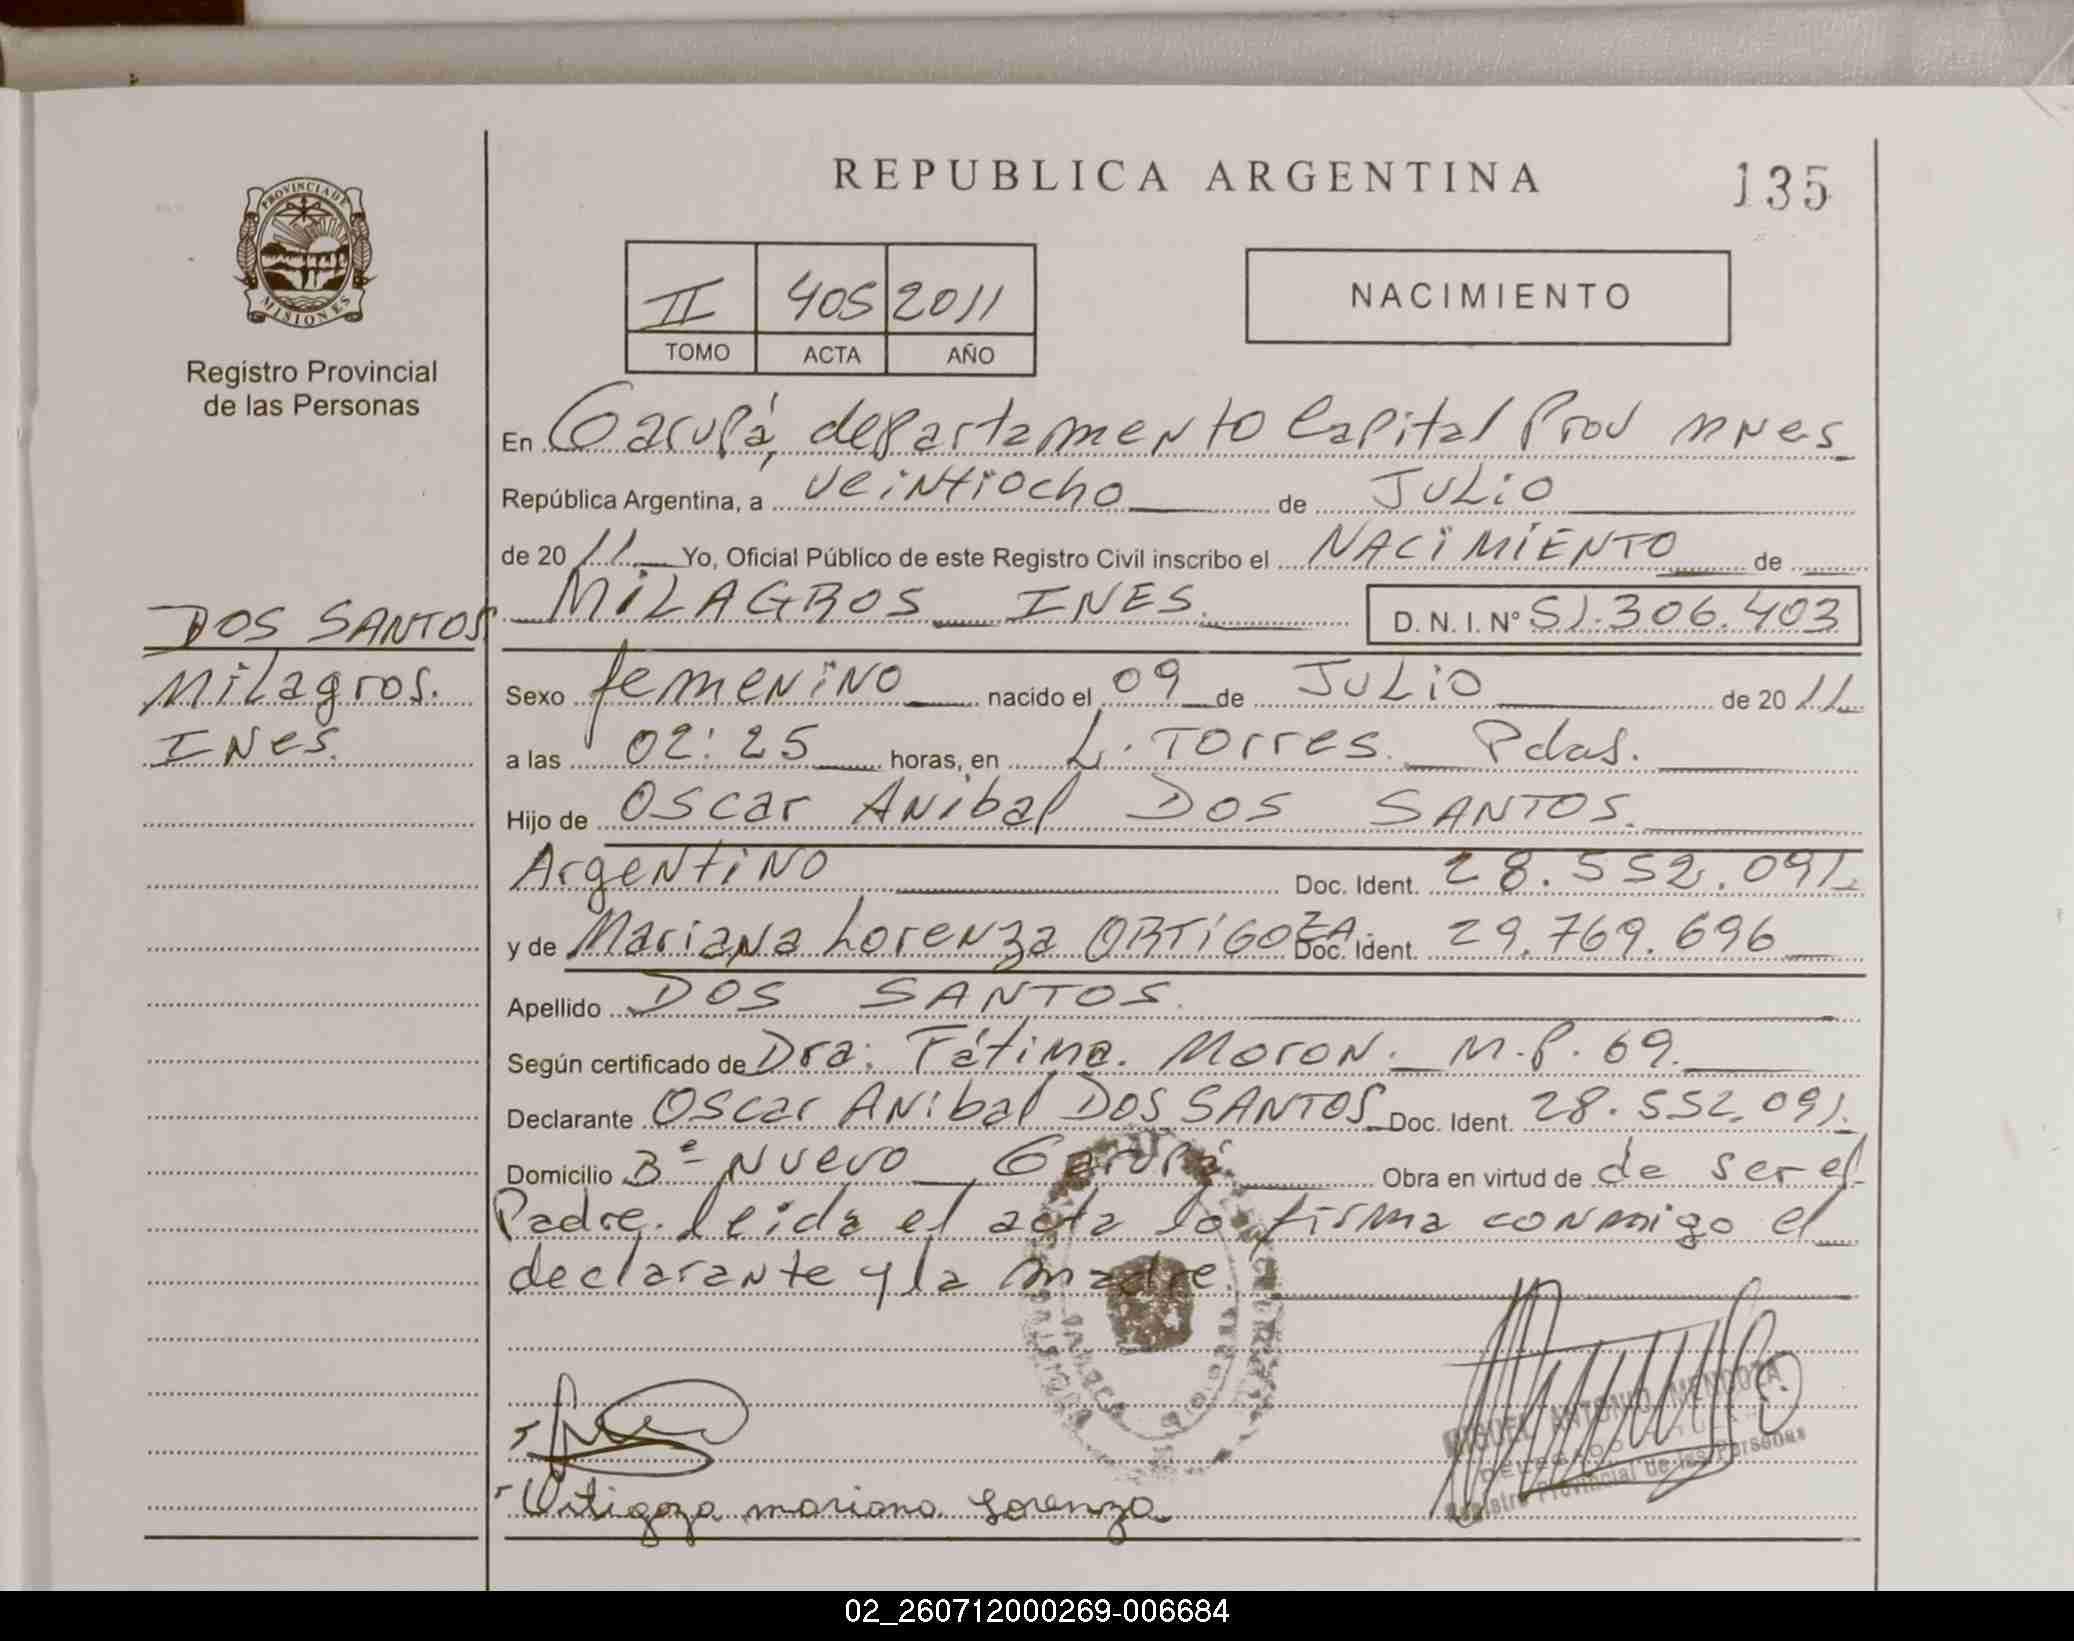 REPUBLICA ARGENTINA
135
PROVINCIA DE
MISIONES
Registro Provincial
de las Personas
II 405 2011
TOMO ACTA AÑO
NACIMIENTO
En Garupá, departamento Capital Prov Mnes
República Argentina, a veintiocho de Julio
de 2011 Yo, Oficial Público de este Registro Civil inscribo el NACIMIENTO de
MILAGROS INES. D. N. I. Nº 51.306.403
DOS SANTOS
Milagros.
INes.
Sexo femenino nacido el 09 de Julio de 2011
a las 02:25 horas, en L. Torres. Pdas.
Hijo de Oscar Anibal DOS SANTOS.
Argentino Doc. Ident. 28.552.091
y de Mariana Lorenza ORTIGOZA. Doc. Ident. 29.769.696
Apellido DOS SANTOS.
Según certificado de Dra: Fátima. Moron. M.P. 69.
Declarante Oscar Anibal DOS SANTOS Doc. Ident. 28.552.091.
Domicilio Bº Nuevo Garupá Obra en virtud de de ser el
Padre. leida el acta lo firma conmigo el
declarante y la madre.
MIGUEL ANTONIO MENDOZA
DELEGADO TITULAR
Registro Provincial de las Personas
Ortigoza mariana Lorenza
02_260712000269-006684